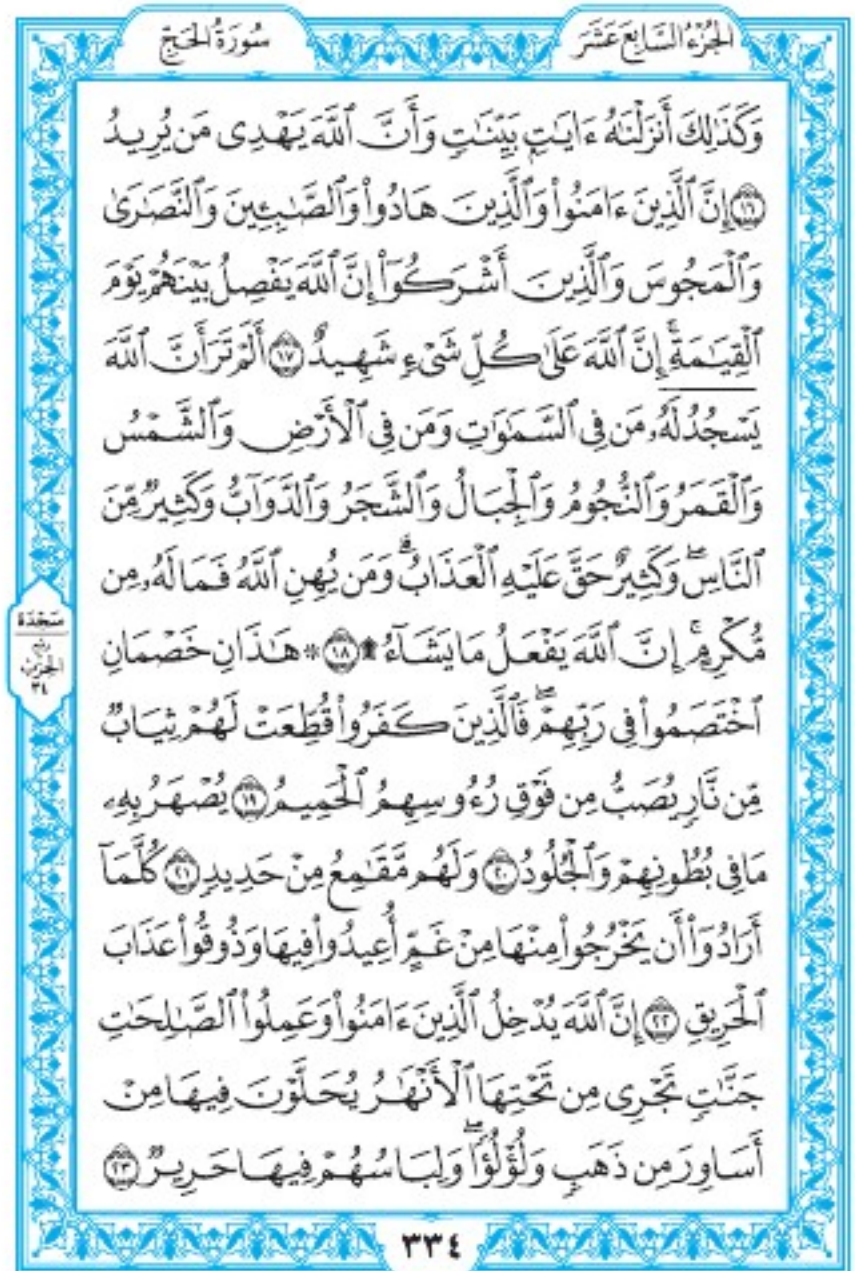 سُورَةُ الحَجّ
الجُزْءُ السَّابِعَ عَشَرَ
وَكَذَٰلِكَ أَنزَلْنَٰهُ ءَايَٰتِۭ بَيِّنَٰتٍ وَأَنَّ ٱللَّهَ يَهْدِى مَن يُرِيدُ
١٦ إِنَّ ٱلَّذِينَ ءَامَنُوا۟ وَٱلَّذِينَ هَادُوا۟ وَٱلصَّٰبِـِٔينَ وَٱلنَّصَٰرَىٰ
وَٱلْمَجُوسَ وَٱلَّذِينَ أَشْرَكُوٓا۟ إِنَّ ٱللَّهَ يَفْصِلُ بَيْنَهُمْ يَوْمَ
ٱلْقِيَٰمَةِۚ إِنَّ ٱللَّهَ عَلَىٰ كُلِّ شَىْءٍ شَهِيدٌ ١٧ أَلَمْ تَرَ أَنَّ ٱللَّهَ
يَسْجُدُ لَهُۥ مَن فِى ٱلسَّمَٰوَٰتِ وَمَن فِى ٱلْأَرْضِ وَٱلشَّمْسُ
وَٱلْقَمَرُ وَٱلنُّجُومُ وَٱلْجِبَالُ وَٱلشَّجَرُ وَٱلدَّوَآبُّ وَكَثِيرٌ مِّنَ
ٱلنَّاسِۖ وَكَثِيرٌ حَقَّ عَلَيْهِ ٱلْعَذَابُۗ وَمَن يُهِنِ ٱللَّهُ فَمَا لَهُۥ مِن
مُّكْرِمٍۚ إِنَّ ٱللَّهَ يَفْعَلُ مَا يَشَآءُ ۩ ١٨ * هَٰذَانِ خَصْمَانِ
ٱخْتَصَمُوا۟ فِى رَبِّهِمْۖ فَٱلَّذِينَ كَفَرُوا۟ قُطِّعَتْ لَهُمْ ثِيَابٌ
مِّن نَّارٍ يُصَبُّ مِن فَوْقِ رُءُوسِهِمُ ٱلْحَمِيمُ ١٩ يُصْهَرُ بِهِۦ
مَا فِى بُطُونِهِمْ وَٱلْجُلُودُ ٢٠ وَلَهُم مَّقَٰمِعُ مِنْ حَدِيدٍ ٢١ كُلَّمَآ
أَرَادُوٓا۟ أَن يَخْرُجُوا۟ مِنْهَا مِنْ غَمٍّ أُعِيدُوا۟ فِيهَا وَذُوقُوا۟ عَذَابَ
ٱلْحَرِيقِ ٢٢ إِنَّ ٱللَّهَ يُدْخِلُ ٱلَّذِينَ ءَامَنُوا۟ وَعَمِلُوا۟ ٱلصَّٰلِحَٰتِ
جَنَّٰتٍ تَجْرِى مِن تَحْتِهَا ٱلْأَنْهَٰرُ يُحَلَّوْنَ فِيهَا مِنْ
أَسَاوِرَ مِن ذَهَبٍ وَلُؤْلُؤًاۖ وَلِبَاسُهُمْ فِيهَا حَرِيرٌ ٢٣
سَجْدَة
الحِزْب
٣٤
٣٣٤